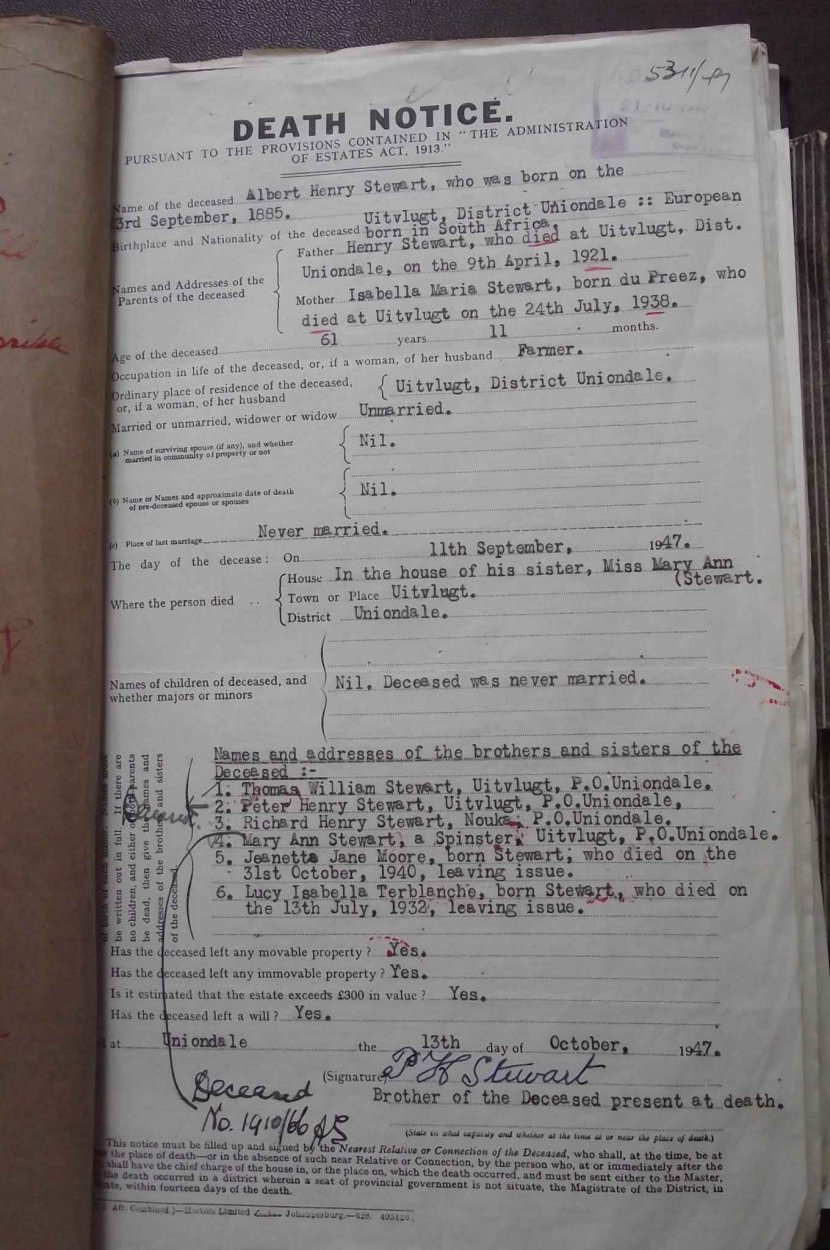 5311/47
DEATH NOTICE.
PURSUANT TO THE PROVISIONS CONTAINED IN "THE ADMINISTRATION
OF ESTATES ACT, 1913."
Name of the deceased Albert Henry Stewart, who was born on the
3rd September, 1885. Uitvlugt, District Uniondale :: European
Birthplace and Nationality of the deceased born in South Africa.
Names and Addresses of the Parents of the deceased
Father Henry Stewart, who died at Uitvlugt, Dist.
Uniondale, on the 9th April, 1921.
Mother Isabella Maria Stewart, born du Preez, who
died at Uitvlugt on the 24th July, 1938.
Age of the deceased 61 years 11 months.
Occupation in life of the deceased, or, if a woman, of her husband Farmer.
Ordinary place of residence of the deceased, or, if a woman, of her husband Uitvlugt, District Uniondale.
Married or unmarried, widower or widow Unmarried.
(a) Name of surviving spouse (if any), and whether married in community of property or not Nil.
(b) Name or Names and approximate date of death of pre-deceased spouse or spouses Nil.
(c) Place of last marriage Never married.
The day of the decease: On 11th September, 1947.
Where the person died ..
House In the house of his sister, Miss Mary Ann
(Stewart.
Town or Place Uitvlugt.
District Uniondale.
Names of children of deceased, and whether majors or minors
Nil. Deceased was never married.
be written out in full. If there are
no children, and either or both parents
be dead, then give the names and
addresses of the brothers and sisters
of the deceased.
Names and addresses of the brothers and sisters of the
Deceased :-
1. Thomas William Stewart, Uitvlugt, P.O.Uniondale.
2. Peter Henry Stewart, Uitvlugt, P.O.Uniondale,
3. Richard Henry Stewart, Nouka, P.O.Uniondale.
4. Mary Ann Stewart, a Spinster, Uitvlugt, P.O.Uniondale.
5. Jeanetta Jane Moore, born Stewart, who died on the
31st October, 1940, leaving issue.
6. Lucy Isabella Terblanche, born Stewart, who died on
the 13th July, 1932, leaving issue.
Has the deceased left any movable property ? Yes.
Has the deceased left any immovable property ? Yes.
Is it estimated that the estate exceeds £300 in value ? Yes.
Has the deceased left a will ? Yes.
at Uniondale the 13th day of October, 1947.
(Signature) P H Stewart
Deceased
No. 1910/66
Brother of the Deceased present at death.
(State in what capacity and whether at the time at or near the place of death.)
This notice must be filled up and signed by the Nearest Relative or Connection of the Deceased, who shall, at the time, be at
the place of death—or in the absence of such near Relative or Connection, by the person who, at or immediately after the
shall have the chief charge of the house in, or the place on, which the death occurred, and must be sent either to the Master,
the death occurred in a district wherein a seat of provincial government is not situate, the Magistrate of the District, in
within fourteen days of the death.
Afr. Combined.)—Hortors Limited Johannesburg.—628.